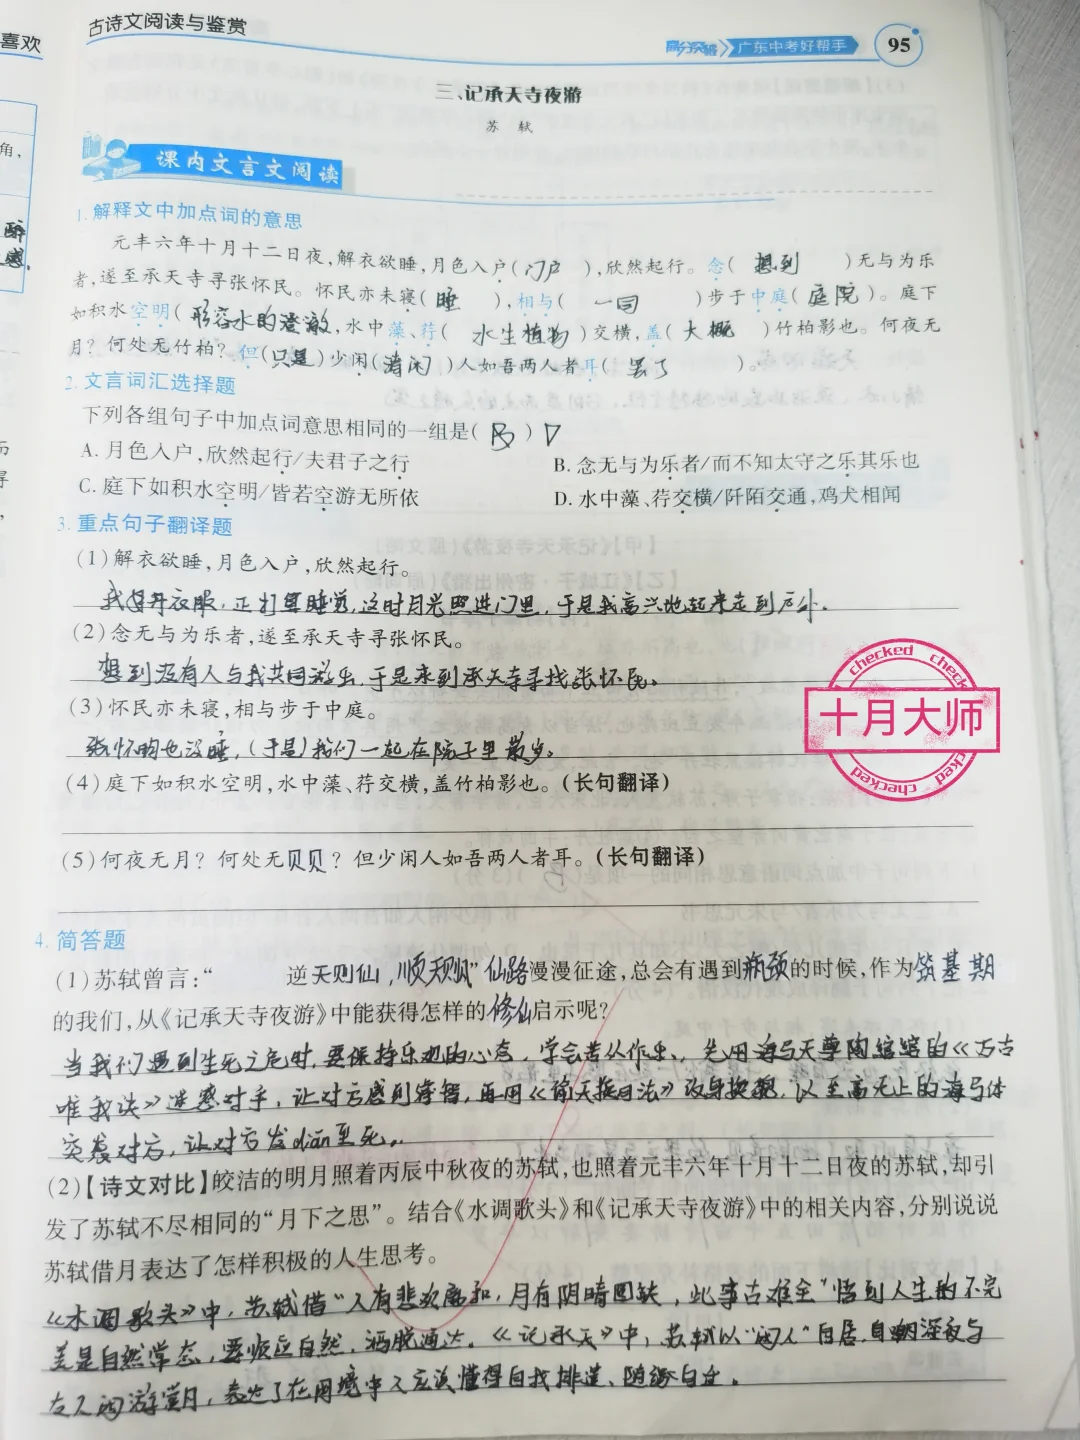 喜欢
角,
醉
感.
古诗文阅读与鉴赏
高分突破 广东中考好帮手 95
三、记承天寺夜游
苏 轼
课内文言文阅读
1. 解释文中加点词的意思
元丰六年十月十二日夜,解衣欲睡,月色入户(门户),欣然起行。念( 想到 )无与为乐
者,遂至承天寺寻张怀民。怀民亦未寝( 睡 ),相与( 一同 )步于中庭( 庭院 )。庭下
如积水空明( 形容水的澄澈,水中藻、荇( 水生植物 )交横,盖( 大概 )竹柏影也。何夜无
月?何处无竹柏?但(只是)少闲(清闲)人如吾两人者耳( 罢了 )。
2. 文言词汇选择题
下列各组句子中加点词意思相同的一组是( B ) D
A. 月色入户,欣然起行/夫君子之行
B. 念无与为乐者/而不知太守之乐其乐也
C. 庭下如积水空明/皆若空游无所依
D. 水中藻、荇交横/阡陌交通,鸡犬相闻
3. 重点句子翻译题
(1)解衣欲睡,月色入户,欣然起行。
衣服,正打算睡觉,这时月光照进门里,于是我高兴地起来走到户外.
(2)念无与为乐者,遂至承天寺寻张怀民。
想到没有人与我共同游乐,于是来到承天寺寻找张怀民.
(3)怀民亦未寝,相与步于中庭。
也没睡,(于是)我们一起在院子里散步.
(4)庭下如积水空明,水中藻、荇交横,盖竹柏影也。(长句翻译)
(5)何夜无月?何处无贝贝?但少闲人如吾两人者耳。(长句翻译)
4. 简答题
(1)苏轼曾言:“ 逆天则仙,顺天则 ”仙路漫漫征途,总会有遇到瓶颈的时候,作为筑基期
的我们,从《记承天寺夜游》中能获得怎样的修仙启示呢?
当我们遇到生死之危时,要保持乐观的心态,学会苦从作乐、先用海马天尊陶 的《万古
唯我诀》迷惑对手,让对方感到 ,再用《偷天换日法》改身换貌,以至高无上的海马体
突袭对方,让对方发dian至死.
(2)【诗文对比】皎洁的明月照着丙辰中秋夜的苏轼,也照着元丰六年十月十二日夜的苏轼,却引
发了苏轼不尽相同的“月下之思”。结合《水调歌头》和《记承天寺夜游》中的相关内容,分别说说
苏轼借月表达了怎样积极的人生思考。
《水调歌头》中,苏轼借“人有悲欢离和,月有阴晴圆缺,此事古难全”悟到人生的不完
美是自然常态,要顺应自然,洒脱通达.《记承天》中,苏轼以“闲人”自居.自嘲深夜与
友人闲游赏月,表达了在困境中人应该懂得自我排遣、随缘自适.
checked
checked
十月大师
checked
checked